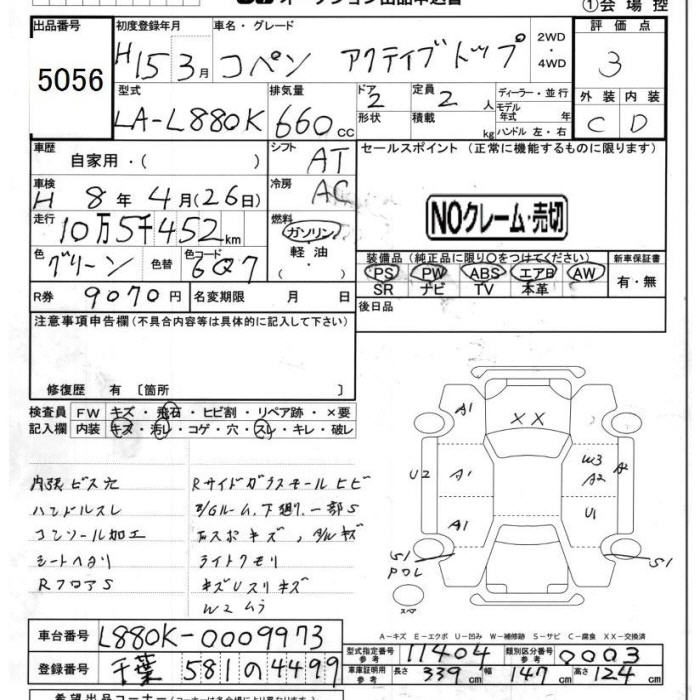 ①会場控
出品番号
5056
初度登録年月
H15 3月
車名・グレード
コペン アクティブトップ
2WD
・
4WD
評価点
3
型式
LA-L880K
排気量
660cc
ドア
2
定員
2人
形状
積載
kg
ディーラー・並行
モデル
年式 年
ハンドル 左・右
外装 内装
C D
車歴
自家用・( )
シフト
AT
車検
H 8年4月(26日)
冷房
AC
走行
10万5千452km
燃料
ガソリン
・
軽油
・
( )
色
グリーン
色替
色コード
6Q7
R券
9070円
名変期限 月 日
セールスポイント(正常に機能するものに限ります)
NOクレーム・売切
装備品(純正品に限り○をつけてください)
PS PW ABS エアB AW
SR ナビ TV 本革
新車保証書
有・無
後日品
注意事項申告欄(不具合内容等は具体的に記入して下さい)
修復歴 有〔箇所 〕
検査員
記入欄
FW キズ・飛石・ヒビ割・リペア跡・×要
内装 キズ・汚レ・コゲ・穴・スレ・キレ・破レ
内張ビス穴
ハンドルスレ
コンソール加工
シートヘタリ
RフロアS
Rサイドガラスモールヒビ
E/Gルーム、下廻り、一部S
ライトクモリ
キズUスリキズ
W2ムラ
A1
XX
U2
A1
W3
A2
A2
A1
U1
S1
POL
S1
スペア
A-キズ E-エクボ U-凹み W-補修跡 S-サビ C-腐食 XX-交換済
車台番号
L880K-0009973
登録番号
千葉 581 の 4499
型式指定番号
参考
11404
類別区分番号
参考
0003
車庫証明用
参考
長さ 339cm 幅 147cm 高さ 124cm